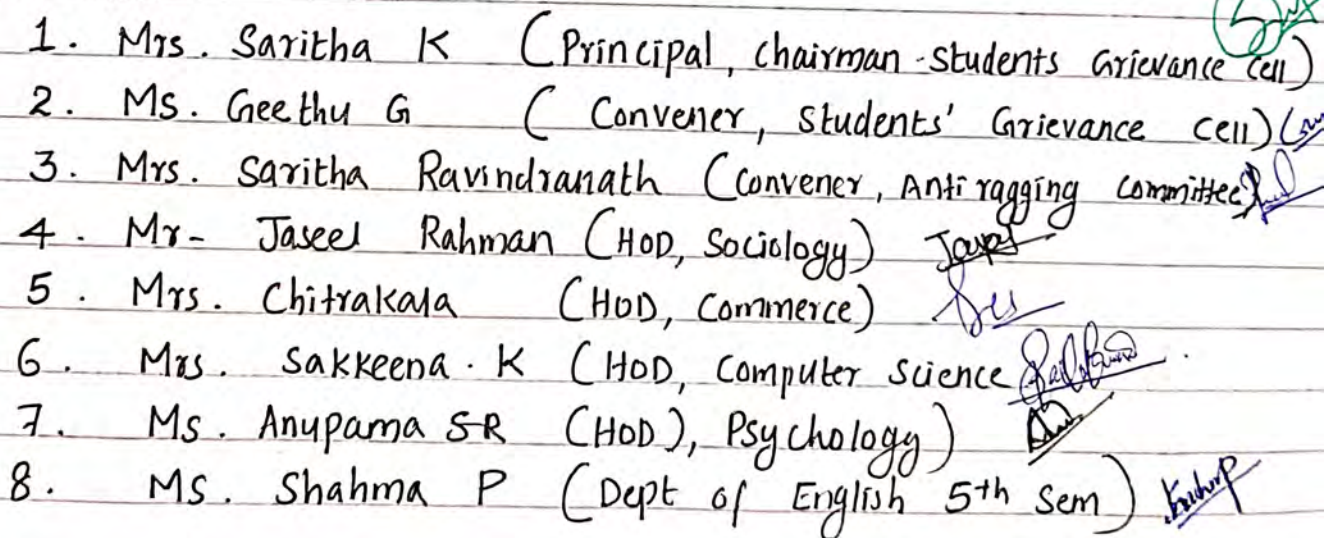 1. Mrs. Saritha K (Principal, chairman-students Grievance cell)
2. Ms. Geethu G ( Convener, Students' Grievance cell)
3. Mrs. Saritha Ravindranath (Convener, Anti ragging committee)
4. Mr- Jaseel Rahman (HOD, Sociology)
5. Mrs. Chitrakala (HOD, Commerce)
6. Mrs. Sakkeena. K (HOD, Computer Science
7. Ms. Anupama S R (HOD), Psychology)
8. Ms. Shahma P (Dept of English 5th Sem)